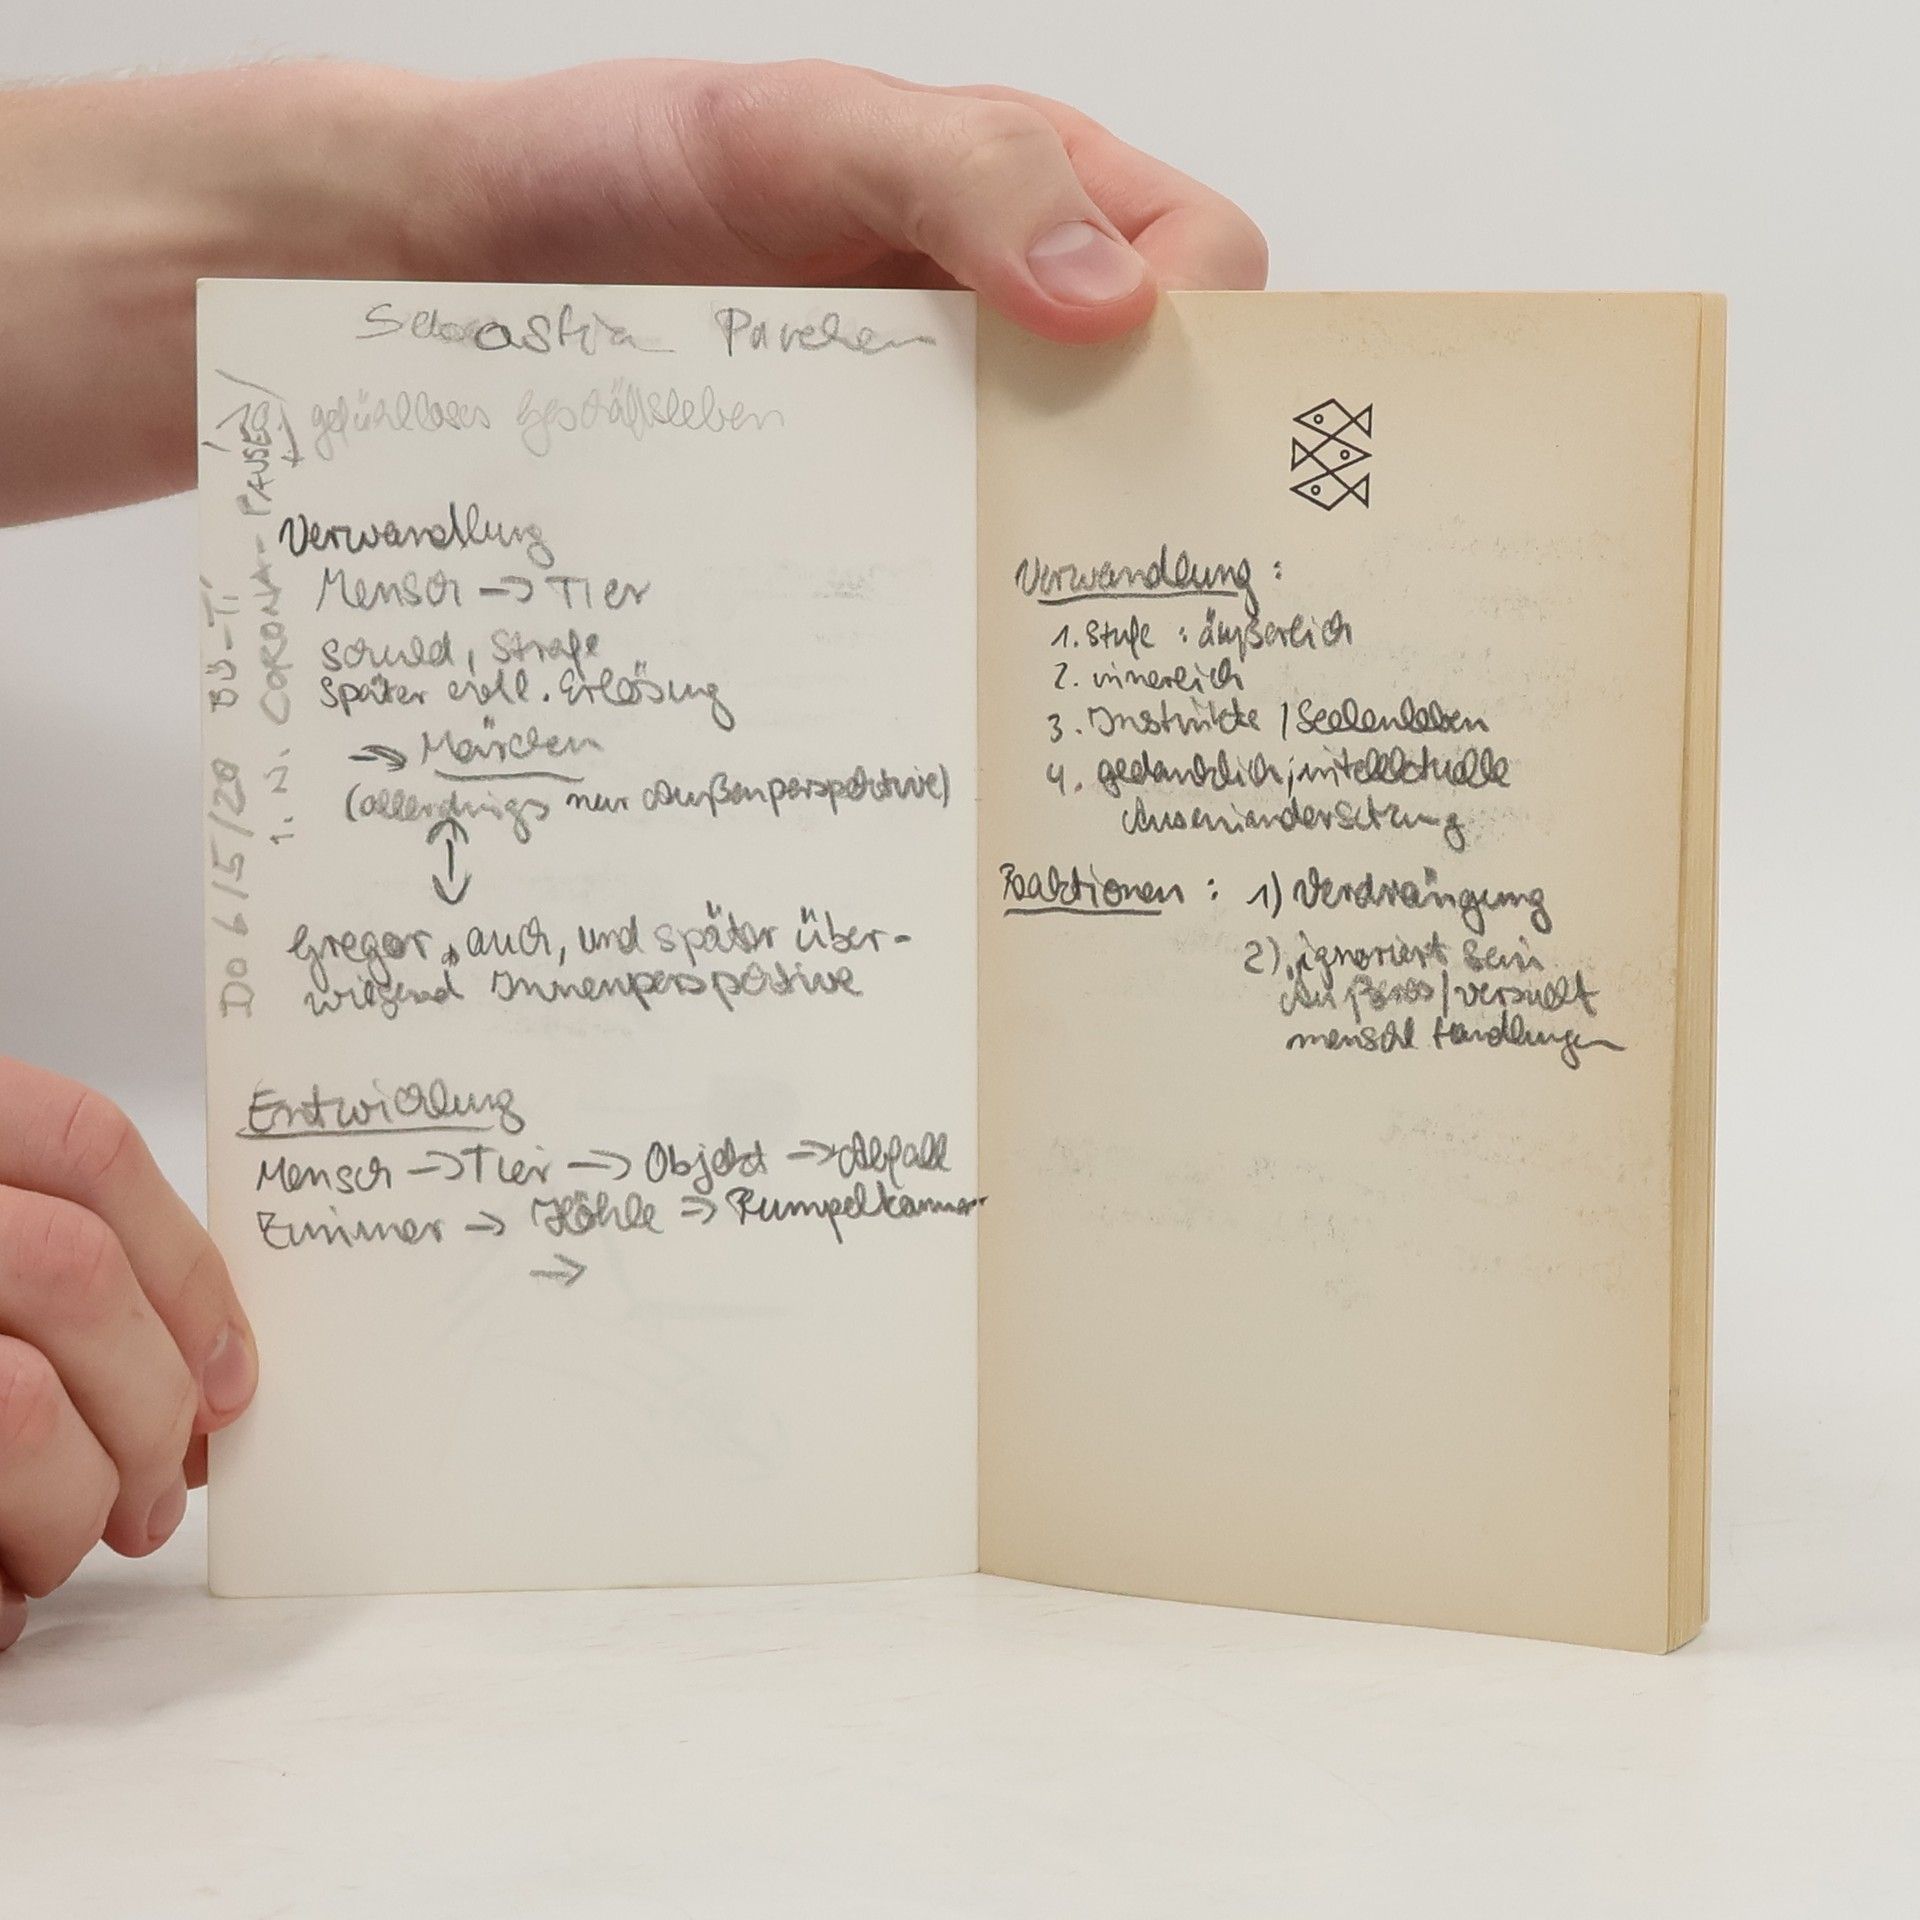 Sebastian
gefühlloses Geschäftsleben
Do 6/5/20 BÜ-TI
1. N. CORONA-PAUSE
Verwandlung
Mensch → Tier
Schuld, Strafe
später evtl. Erlösung
→ Märchen
(allerdings nur Außenperspektive)
Gregor, auch, und später über-
wiegend Innenperspektive
Entwicklung
Mensch → Tier → Objekt → Abfall
Zimmer → Höhle → Rumpelkammer
→
Verwandlung:
1. Stufe: äußerlich
2. innerlich
3. Instinkte / Seelenleben
4. gedanklich; intellektuelle
Auseinandersetzung
Reaktionen: 1) Verdrängung
2) ignoriert sein
Äußeres / versucht
menschl Handlungen